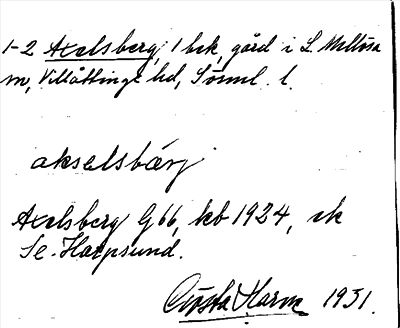 1-2 Axelsberg, 1 bek, gård i L. Mellösa
sn, Villåttinge hd, Söderml. l.
akselsbärj
Axelsberg G66, kb 1924, ek
Se. Harpsund.
Gösta Harm 1931.